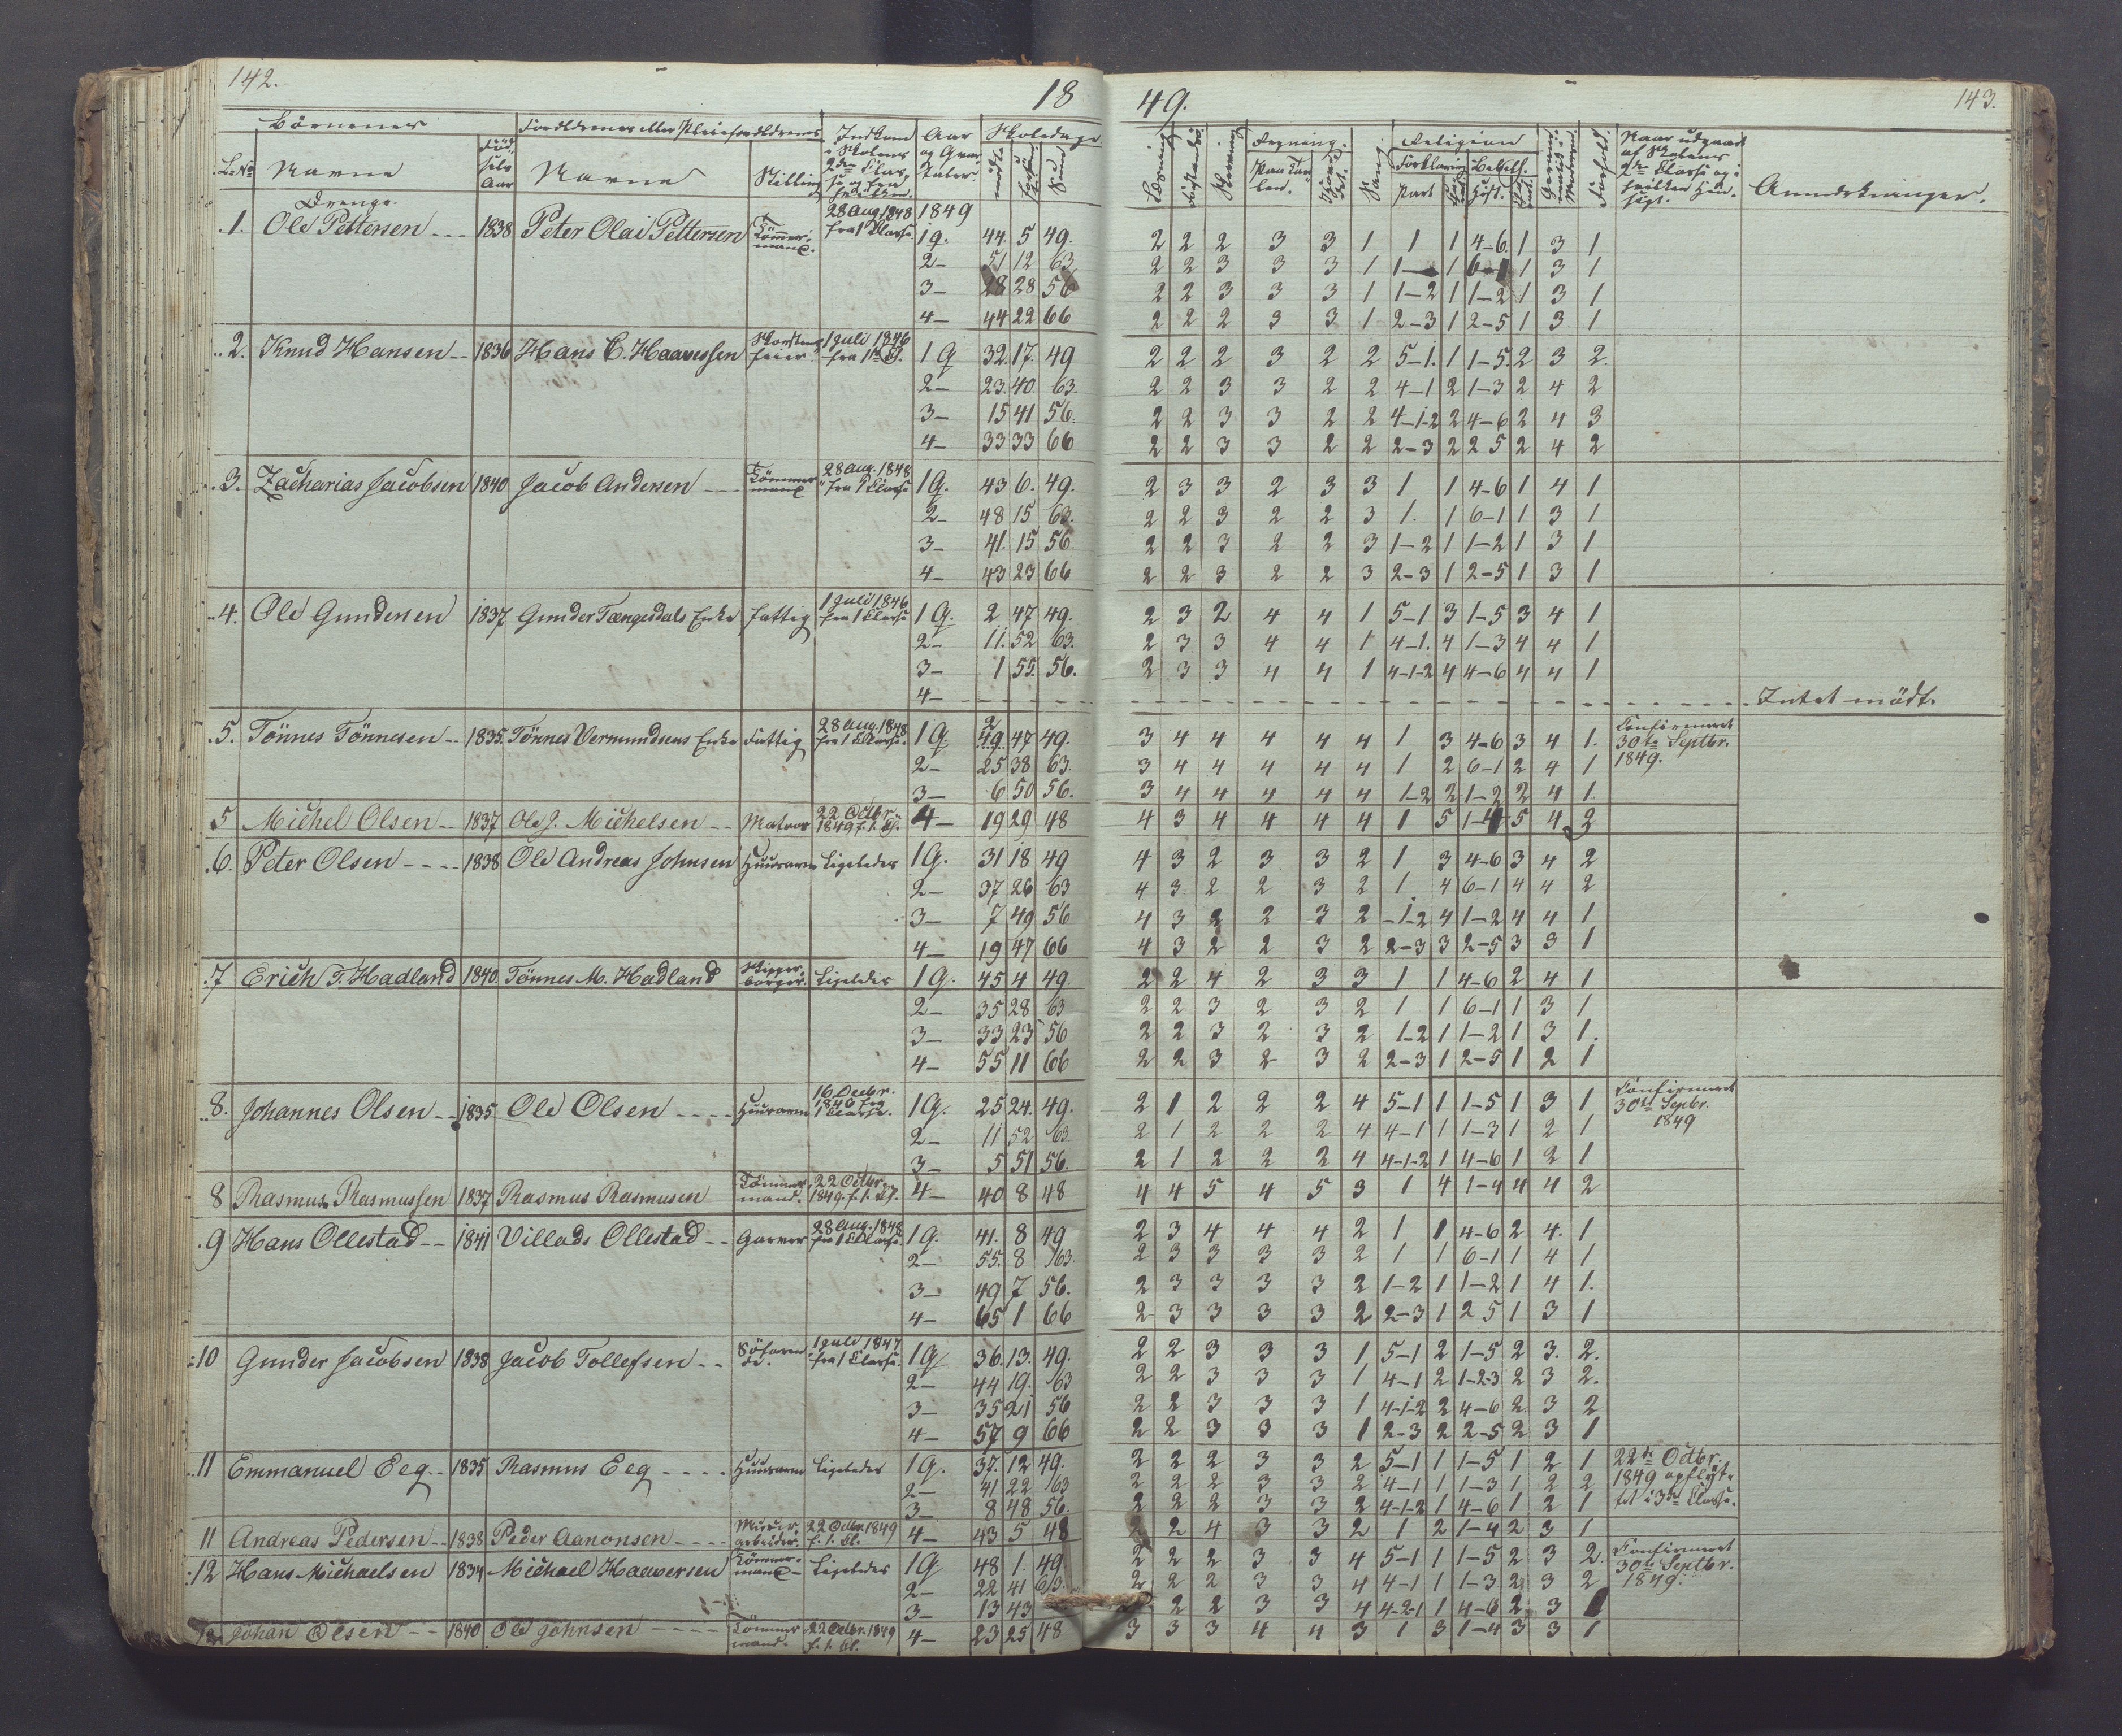 142.
18
49.
143.
Börnenes
Forældrenes eller Pleieforældrenes
Indkom i Skolens 2den Classe og fra hvilken
Aar og Quartaler
Skoledage
L. No
Navne
Födsels Aar
Navne
Stilling
mödte
forsömte
Sum
Læsning
Skrivning
Regning.
Paa Tavlen.
Sang
Religion
Forklaring
Part
Hist.
Forhold.
Naar udgaaet af Skolens 2den Classe og i hvilken Hensigt.
Anmærkninger.
Drenge.
1. Ole Pettersen 1838 Peter Olai Pettersen Tömmermand. 28 Aug 1848 fra 1 Classe 1849
1Q. 44. 5 49. 2 2 2 3 3 1 1 1 4-6. 1 3 1
2- 51 12 63 2 2 3 3 3 1 1- 1 6-1 1 3 1
3- 28 28 56 2 2 3 3 3 1 1-2 1 1-2 1 3 1
4- 44 22 66 2 2 2 3 3 1 2-3 1 2-5 1 3 1
2. Knud Hansen 1836 Hans C. Haavessen Skorstensfeier. 1 Juli 1846 fra 1ste Cl. 1Q 32. 17. 49 2 2 2 3 2 2 5-1. 1 1-5. 2 3 2.
2- 23. 40 63. 2 2 3 3 2 2 4-1 2 1-3 2 4 2
3- 15 41 56. 2 2 3 3 2 2 4-1-2 2 4-6 2 4 3
4- 33 33 66 2 2 3 3 2 2 2-3 2 2 5 2 4 2
3. Zacharias Jacobsen 1840 Jacob Andersen Tömmermand 28 Aug. 1848 fra 1 Classe 1Q. 43 6. 49. 2 3 3 2 3 3 1 1 4-6 1 4 1
2- 48 15 63. 2 2 3 2 2 3 1. 1 6-1 1 3 1
3- 41. 15 56. 2 2 3 2 2 3 1-2 1 1-2 1 3 1
4- 43 23 66 2 2 3 2 2 3 2-3 1 2-5 1 3 1
4. Ole Gundersen 1837 Gunder Tængesdals Enke fattig 1 Juli 1846 fra 1 Classe 1Q. 2 47 49. 2 3 2 4 4 1 5-1 3 1-5 3 4 1
2- 11. 52 63. 2 3 3 4 4 1 4-1. 4 1-3 4 4 1
3- 1 55. 56. 2 3 3 4 4 1 4-1-2 4 4-6 4 4 1
4- Intet mödt.
5. Tönnes Tönnesen 1835. Tönnes Vermundsens Enke Fattig 28 Aug. 1848 fra 1 Classe. 1Q 2 47 49. 3 4 4 4 4 4 1 3 4-6 3 4 1. Confirmeret 30te Septbr. 1849.
2- 25 38 63. 3 4 4 4 4 4 1 2 6-1 2 4 1
3- 6 50 56. 3 4 4 4 4 4 1-2 2 1-2 2 4 1
5 Michel Olsen 1837 Ole J. Michelsen Matros 22 Octbr. 1849 f. 1. Cl. 4- 19 29 48 4 3 4 4 4 4 1 5 1-4 5 4 2
6. Peter Olsen 1838 Ole Andreas Johnsen Huusarm Ligeledes 1Q. 31 18 49 4 3 2 3 3 2 1 3 4-6 3 4 2
2- 37 26 63 4 3 2 2 3 2 1 4 6-1 4 4 2
3- 7 49 56 4 3 2 2 3 2 -1-2 4 1-2 4 4 1
4- 19 47 66 4 3 2 2 3 2 2-3 3 2-5 3 3 1
7 Erich T. Hadland 1840 Tönnes M. Hadland Skipperborger. Ligeledes 1Q. 45 4 49. 2 2 4 2 3 3 1 1 4-6 2 4 1
2- 35 28 63 2 2 3 2 3 2 1 1 6-1 1 3 1
3- 33 23 56 2 2 3 2 3 2 1-2 1 1-2 1 3 1.
4- 55 11 66 2 2 3 2 3 2 2-3 1 2-5 1 2 1
8. Johannes Olsen 1835 Ole Olsen Huusarm 16 Decbr. 1846 fra 1 Classe. 1Q. 25 24. 49. 2 1 2 2 2 4 5-1 1 1-5 1 3 1 Confirmeret 30te Septbr. 1849
2- 11 52 63. 2 1 2 2 2 4 4-1 1 1-3 1 2 1
3- 5 51 56. 2 1 2 2 2 4 4-1-2 1 4-6 1 2 1
8 Rasmus Rasmussen 1837 Rasmus Rasmusen Tömmermand. 22 Octbr. 1849. f. 1. Cl. 4- 40 8 48 4 4 5 4 5 3 1 4 1-4 4 4 2
9 Hans Ollestad 1841 Villads Ollestad Garver 28 Aug. 1848 fra 1 Classe. 1Q. 41. 8 49 2 3 4 4 4 2 1 1 4-6 2 4. 1
2- 55. 8 63 2 3 3 3 3 2 1 1 6-1 1 4 1
3- 49 7 56. 2 3 3 3 3 2 1-2 1 1-2 1 4 1.
4- 65 1 66 2 3 3 3 3 2 2-3 1 2 5 1 3 1
10 Gunder Jacobsen 1838 Jacob Tollefsen Söfarende. 1 Juli 1847 fra 1 Classe. 1Q 36. 13. 49. 2 2 3 3 3 1 5-1 2 1-5 2 3. 2.
2- 44 19. 63 2 2 3 3 3 1 4-1 2 1-2-3 2 3 2.
3- 35 21 56 2 2 3 3 3 1 4-1-2 2 4-6 2 3 2
4- 57 9 66 2 2 3 3 3 1 2-3 2 2-5 2 3 1
11 Emmanuel Eeg 1835 Rasmus Eeg Huusarm Ligeledes 1Q. 37. 12 49. 2 2 2 3 3 2 5-1 1 1-5 1 2 1 22de Octbr. 1849 opflyttet i 3die Classe.
2- 41 22 63 2 2 2 3 3 2 4-1 1 1-3 1 2 2
3- 8 48 56. 2 2 2 3 3 2 4-1-2 1 4-6 1 2 1
11 Andreas Pedersen 1838 Peder Aanonsen Muurarbeider. 22 Octbr. 1849 f. 1. Cl. 4- 43 5 48 2 2 4 3 3 2 1 2 1-4 2 3 1
12 Hans Michaelsen 1834 Michael Haaversen Tömmermand Ligeledes 1Q 48 1. 49. 2 2 2 3 3 4 5-1 1 1-5 2 3 2. Confirmeret 30te Septbr. 1849.
2- 22 41 63. 2 2 2 3 3 4 4-1 1 1-3 2 3 2
3- 13 43 2 2 3 3 4 4-2-1 1 4-6 2 3 1
12 Johan Olsen 1840 Ole Johnsen Tömmermand. 22 Octbr. 1849 f. 1. Cl. 4- 23 25 48 3 3 3 4 4 3 1 3 1-4 3 3 1